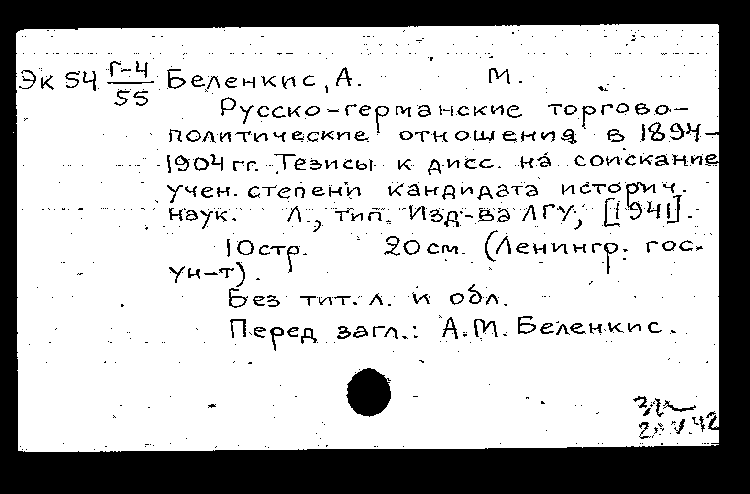 Эк 54 Г-4/55 Беленкис, А. М.
Русско-германские торгово-
политические отношения в 1894-
1904 гг. Тезисы к дисс. на соискание
учен. степени кандидата историч.
наук. Л., тип. Изд-ва ЛГУ, [1941].
10 стр. 20 см. (Ленингр. гос.
ун-т).
Без тит. л. и обл.
Перед загл.: А.М. Беленкис.
V.42